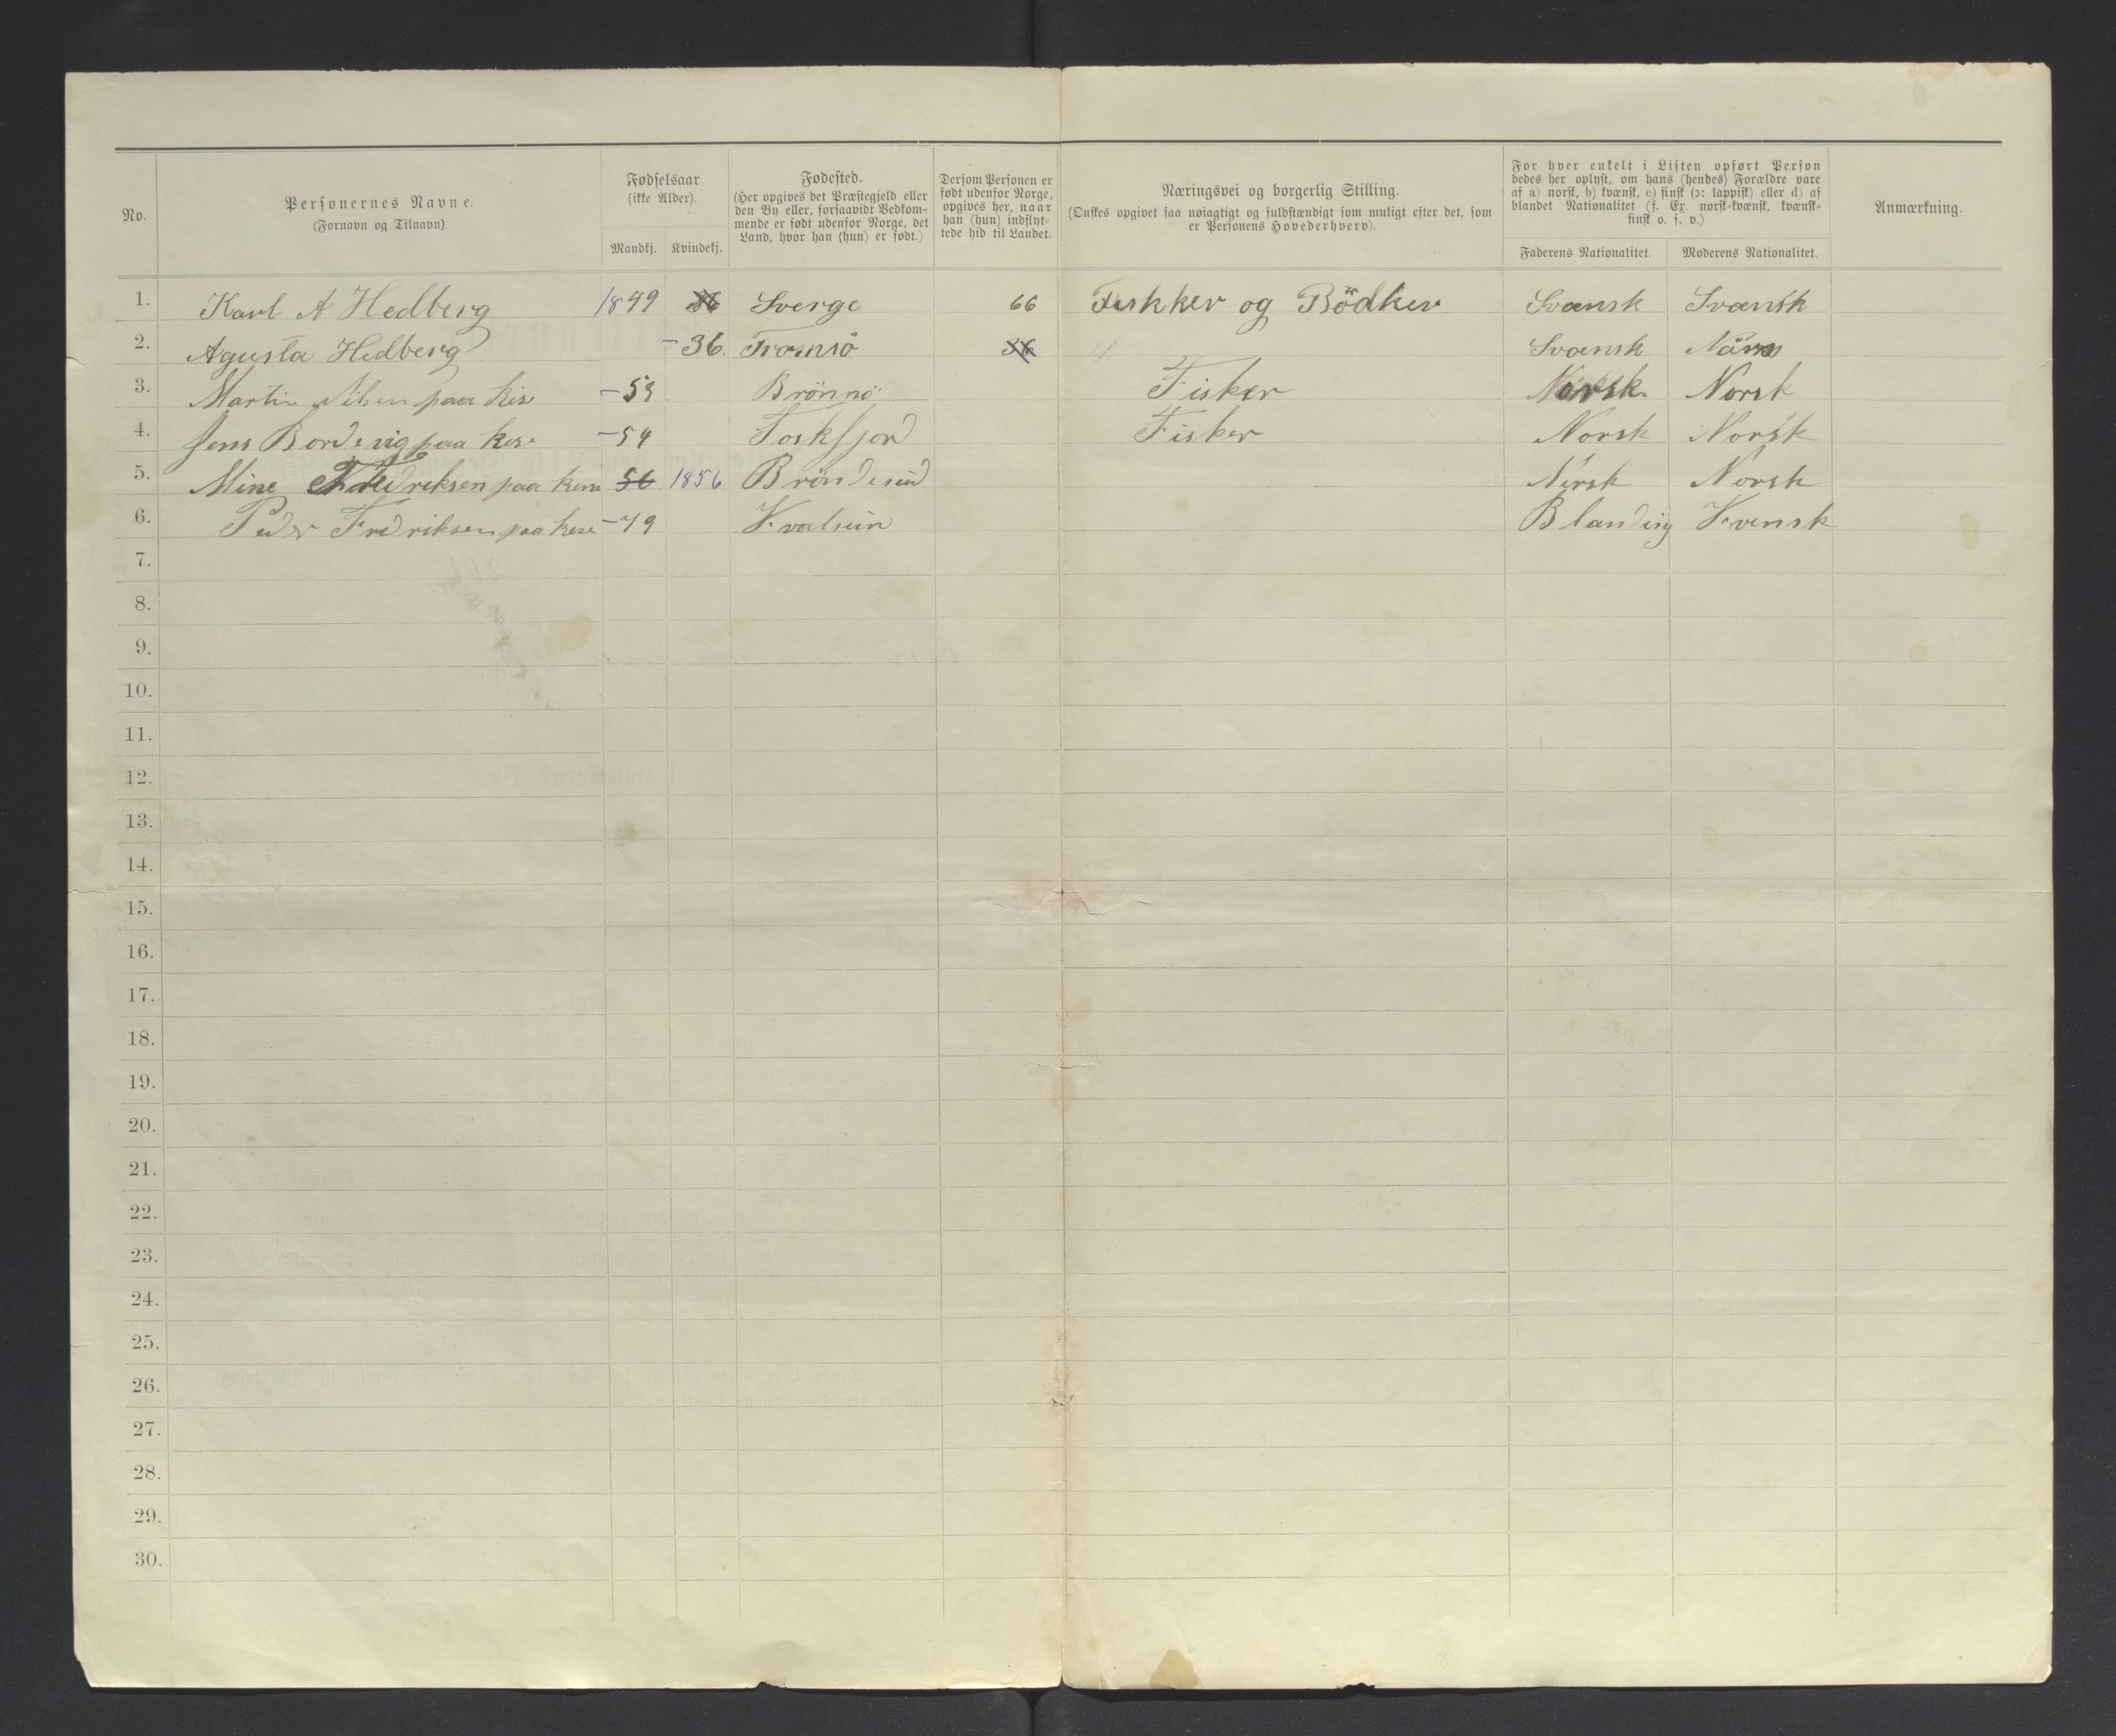 No.
Personernes Navne.
(Fornavn og Tilnavn).
Fødselsaar
(ikke Alder).
Mandkj. Kvindekj.
Fødested.
(Her opgives det Præstegjeld eller
den By eller, forsaavidt Vedkom-
mende er født udenfor Norge, det
Land, hvor han (hun) er født.)
Dersom Personen er
født udenfor Norge,
opgives her, naar
han (hun) indflyt-
tede hid til Landet.
Næringsvei og borgerlig Stilling.
(Ønskes opgivet saa nøiagtigt og fuldstændigt som muligt efter det, som
er Personens Hovederhverv).
For hver enkelt i Listen opført Person
bedes her oplyst, om hans (hendes) Forældre vare
af a) norsk, b) kvænsk, c) finsk (ɔ: lappisk) eller d) af
blandet Nationalitet (f. Ex. norsk-kvænsk, kvænsk-
finsk o. s. v.)
Faderens Nationalitet. Moderens Nationalitet.
Anmærkning.
1. Karl A Hedberg 1849 36 Sverge 66 Fishker og Bödker Svænsk Svænsk
2. Agusta Hedberg - 36. Tromsö 36 Svænsk
3. Martin Nilsen paa - 53 Brönnö Fisker Norsk Norsk
4. Jens paa - 54 Toskfjord Fisker Norsk Norsk
5. Mine Fredreksen paa 56 1856 Bröndesund Norsk Norsk
6. Peder Fredriksen paa - 79 Kvalsun Blanding Kvensk
7.
8.
9.
10.
11.
12.
13.
14.
15.
16.
17.
18.
19.
20.
21.
22.
23.
24.
25.
26.
27.
28.
29.
30.